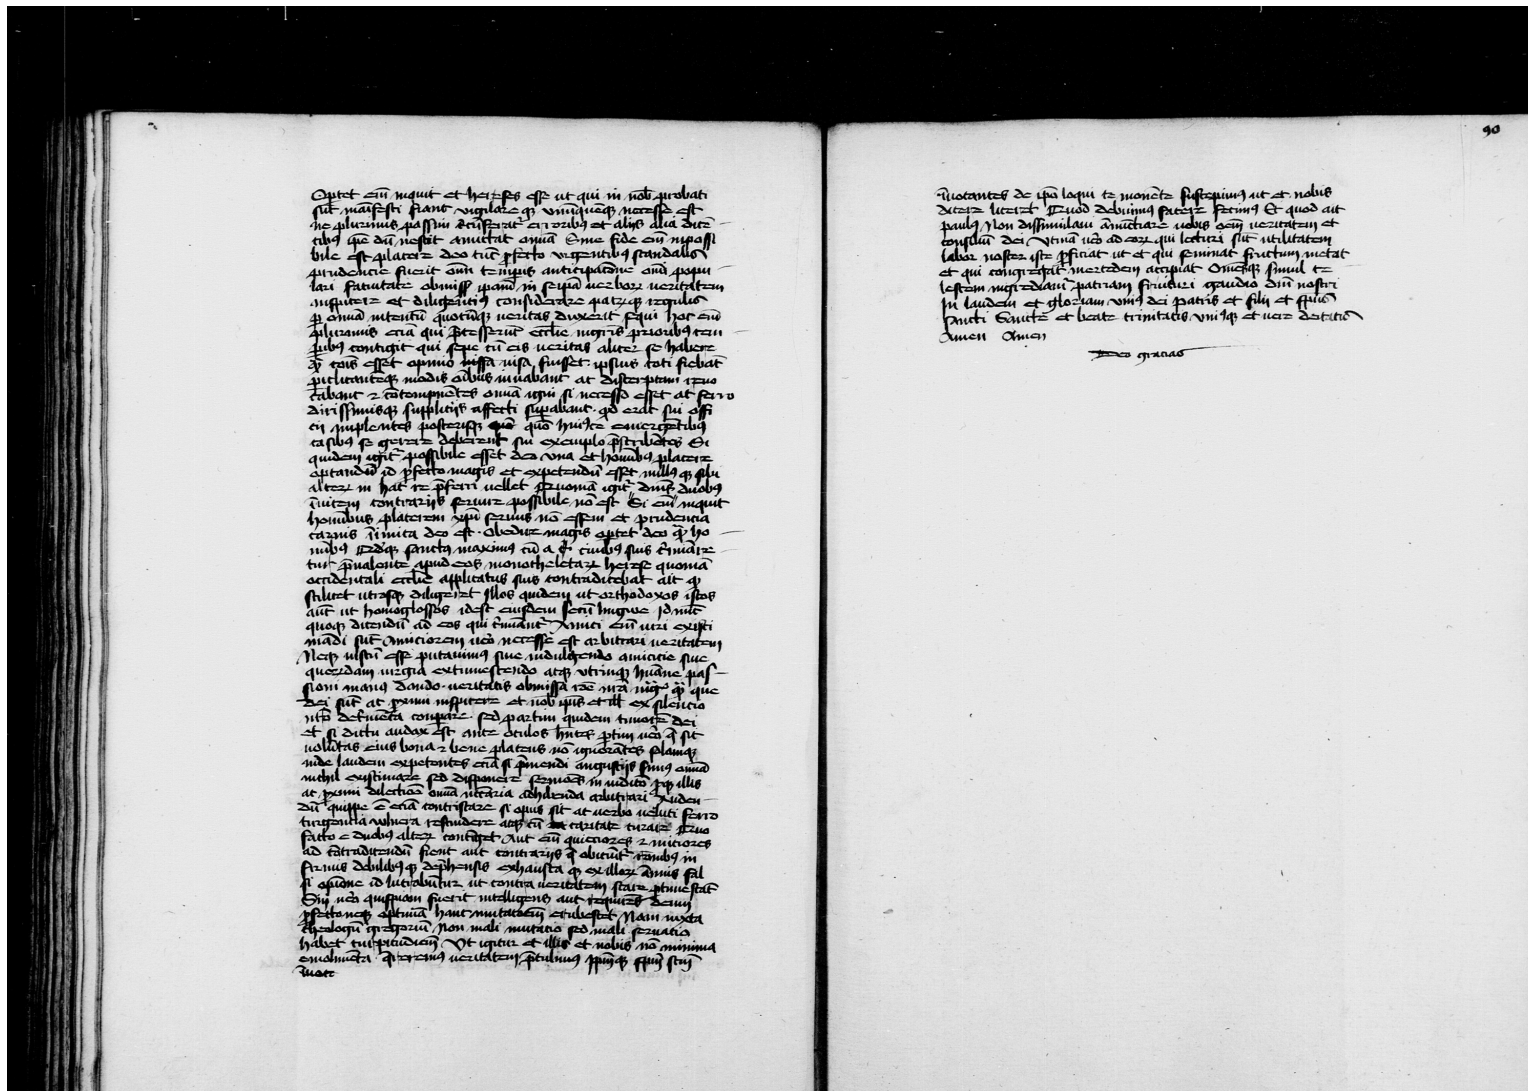 90
Optet em̄ inquit et hereses esse ut qui in nob̄ probati
sūt manifesti fiant vigilare qȝ vnūquemqȝ necesse est
ne plurimis passim erroribȝ et alijs alia dicē
tibus ipse dū nescit amittat omnia Sine fide em̄ inpossi
bile est placere deo tūc profecto vrgentibȝ scandalis
prudencie fuerit om̄ temporis anticipacione om̄ popu
lari fatuitate obmissa ipam in seipsa verborȝ veritatem
inspicere et diligentius considerare patrūqȝ regulis
omnia intentū quocūqȝ veritas duxerit sequi hoc em̄
plurimis eciam qui precesserunt ecclie nigris prioribȝ tem
poribȝ contigit qui sepe cū eis veritas aliter se habere
qȝ cois esset opinio visa fuisset ipsius toti fiebant
periclitantesqȝ modis oībus iuuabant ac disceptam reno
cabant ⁊ contempnētes omnia igni si necesse esset ac ferro
dirissimisqȝ supplicijs affecti superabant qd erat sui offi
cij implentes posterisqȝ quo huiꝰce emergētibȝ
casibȝ se gerere deberent sui exemplo prescribētes Si
quidem igitur possibile esset deo vna et hominibȝ placere
optandū id profecto magis et expetendū esset nullusqȝ sibi
alterȝ in hac re preferri vellet Quoniā igitur dominis duobȝ
inuicem contrarijs seruire possibile nō est Si em̄ inquit
hominibus placerem xpī seruus nō essem et prudencia
carnis inimica deo est Obedire magis optet deo qȝ ho
minibȝ sanctus maximus cū a ciuibȝ suis
tur preualente apud eos monotheletarȝ herese quoniā
occidentali ecclie applicatus suis contradicebat ait qȝ
scilicet vtrosqȝ diligeret Illos quidem ut orthodoxos istos
aut ut homoglossos idest eiusdem secū lingwe Id nūc
quoqȝ dicendū ad eos qui Amici em̄ viri existi
mādi sūt Amiciorem vero necesse est arbitrari veritatem
Neqȝ iustū esse putauimus siue indulgendo amicicie siue
querdam iurgia extimescendo atqȝ vtrinqȝ humane pas
sioni manus dando veritatis obmissa que
dei sūt ac proximi inspicere et nob ipsis et ill ex silencio
detrimenta conparare sed partim quidem timorē dei
et si dictu audax est ante oculos hntes partim vero q sit
voluntas eius bona ⁊ bene placens nō ignorātes
inde laudem expetentes eciā si premendi angustijs simus omnia
nichil existimare sed disponere sermones in iudicio illis
ac proximi dilectione omnia necessaria adhibenda arbitrari
dū quippe ē eciā contristare si opus sit ac verbo veluti ferro
turgencia vulnera rescindere atqȝ cū caritate curare Quo
facto e duobus alterȝ continget Aut em̄ quieciores ⁊ miciores
ad contradicendū fient aut contrarijs q obiciunt racōibus in
firmis debilibȝqȝ deprehensis exhausta qȝ ex illorȝ animis fal
si opinione id lucrabuntur ut contra veritatem stare pertimescāt
Sin vero quispiam fuerit intelligens aut requirēs deum
profectoneqȝ optimā hanc mutacionem erubescet Nam iuxta
theologū gregoriū Non mali mutatio sed mali seruatio
habet turpitudinem Vt igitur et illis et nobis nō minima
emolumenta queremus veritatem pretulimus ipsumqȝ spm scm
inuoca
inuocantes de ipso loqui te monente suscepimus ut et nobis
dicere liceret Quod debuimus facere fecimus Et quod ait
paulus Non dissimulaui annunctiare vobis oem veritatem et
consiliū dei Vtinā vero ad eorȝ qui lecturi sūt vtilitatem
labor noster iste proficiat ut et qui seminat fructum metat
et qui congregat mercedem accipiat Omnesqȝ simul ce
lestem ingrediam patriam fruituri gaudio dni nostri
In laudem et gloriam vnius dei patris et filij et spus
sancti Sancte et beate trinitatis vniusqȝ et vere deitatis
Amen Amen
Deo gracias